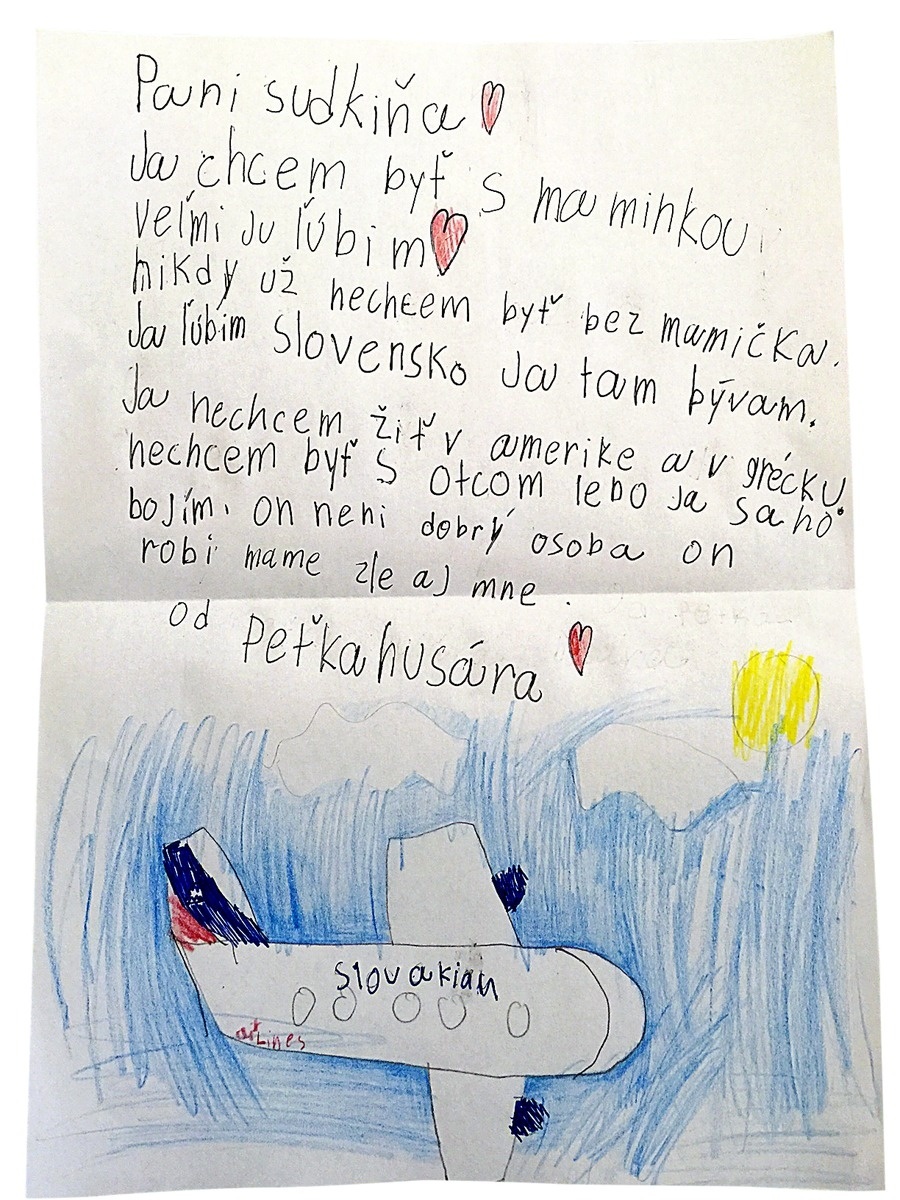 Pani sudkiňa
Ja chcem byť s maminkou
veľmi ju ľúbim
nikdy už nechcem byť bez mamička.
Ja ľúbim Slovensko Ja tam bývam.
Ja nechcem žiť v amerike a v grécku
nechcem byť s otcom lebo ja sa ho
bojím. on neni dobrý osoba on
robi mame zle aj mne.
od Peťka husára
Slovakian
airLines